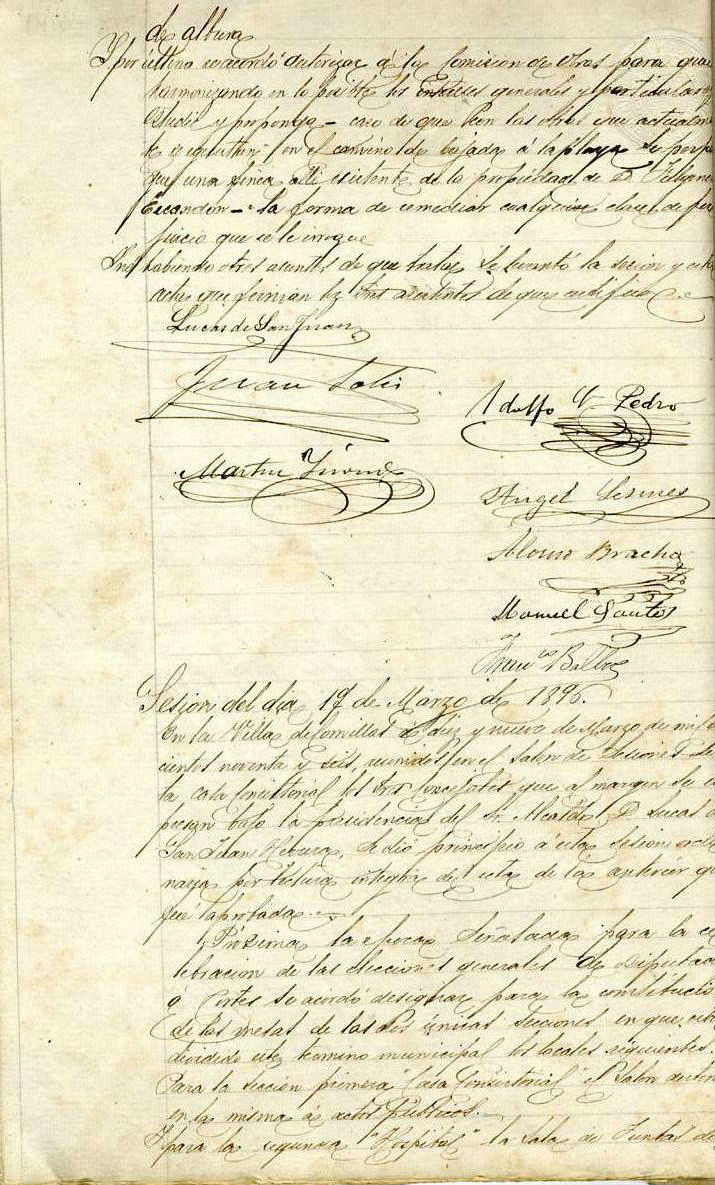 de altura
Y por último se acordó autorizar á la Comision de Obras para que
harmonizando en lo posible los intereses generales y particulares
estudie y proponga - caso de que con las obras que actualmen
te se ejecutan en el camino de bajada á la playa se perju
que una finca allí existente de la propiedad de D.
Escandon - la forma de remediar cualquiera clase de per
juicio que se le irrogue
Y no habiendo otros asuntos de que tratar se levantó la sesion y esta
acta que firman los Sres asistentes de que certifico
Lucas de San Juan
Juan Solis
Adolfo V. Pedro
Martin
Angel
Alonso Bracho
Manuel Santos
Franco Balbas
Sesion del dia 19 de Marzo de 1896.
En la Villa de Comillas á diez y nueve de Marzo de mil o
cientos noventa y seis, reunidos en el Salon de Sesiones de
ta casa Consistorial los Sres Concejales que al margen se ex
presan bajo la presidencia del Sr. Alcalde D. Lucas d
San Juan, se dió principio á esta sesion ordi
naria por lectura integra del acta de la anterior q
fué aprobada.
Próxima la epoca señalada para la ce
lebracion de las elecciones generales de Diputad
a Cortes se acordó designar para la constitucio
de las mesas de las dos únicas secciones en que está
dividido este termino municipal los locales siguientes.
Para la sección primera "Casa Consistorial" el Salon destin
en la misma a actos públicos.
Y para la segunda "Hospital" la Sala de Juntas de